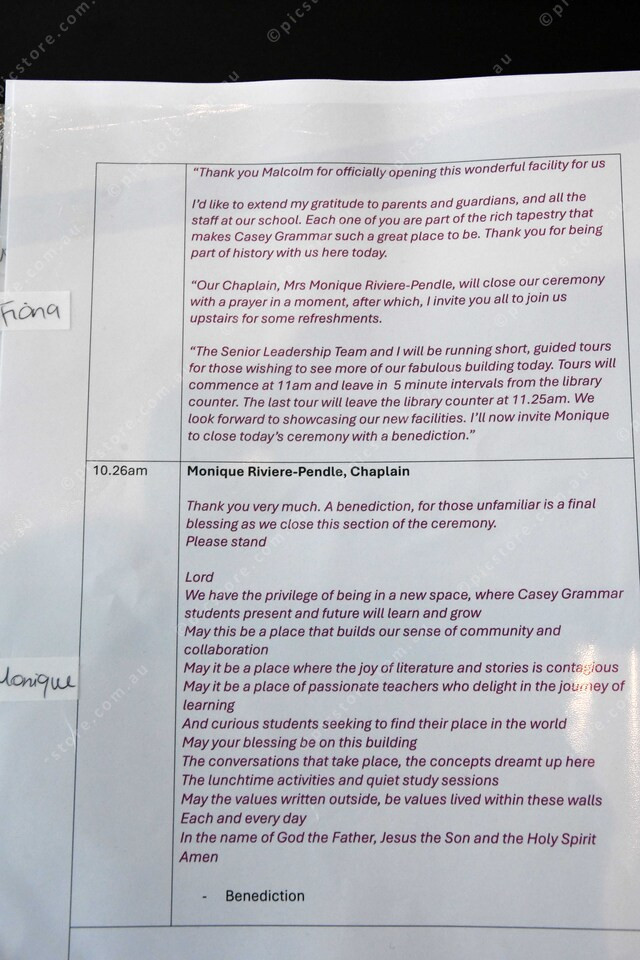 "Thank you Malcolm for officially opening this wonderful facility for us
I'd like to extend my gratitude to parents and guardians, and all the
staff at our school. Each one of you are part of the rich tapestry that
makes Casey Grammar such a great place to be. Thank you for being
part of history with us here today.
"Our Chaplain, Mrs Monique Riviere-Pendle, will close our ceremony
with a prayer in a moment, after which, I invite you all to join us
upstairs for some refreshments.
Fiona
"The Senior Leadership Team and I will be running short, guided tours
for those wishing to see more of our fabulous building today. Tours will
commence at 11am and leave in 5 minute intervals from the library
counter. The last tour will leave the library counter at 11.25am. We
look forward to showcasing our new facilities. I'll now invite Monique
to close today's ceremony with a benediction."
10.26am
Monique Riviere-Pendle, Chaplain
Thank you very much. A benediction, for those unfamiliar is a final
blessing as we close this section of the ceremony.
Please stand
Lord
We have the privilege of being in a new space, where Casey Grammar
students present and future will learn and grow
May this be a place that builds our sense of community and
collaboration
May it be a place where the joy of literature and stories is contagious
May it be a place of passionate teachers who delight in the journey of
learning
Monique
And curious students seeking to find their place in the world
May your blessing be on this building
The conversations that take place, the concepts dreamt up here
The lunchtime activities and quiet study sessions
May the values written outside, be values lived within these walls
Each and every day
In the name of God the Father, Jesus the Son and the Holy Spirit
Amen
- Benediction
© picstore.com.au